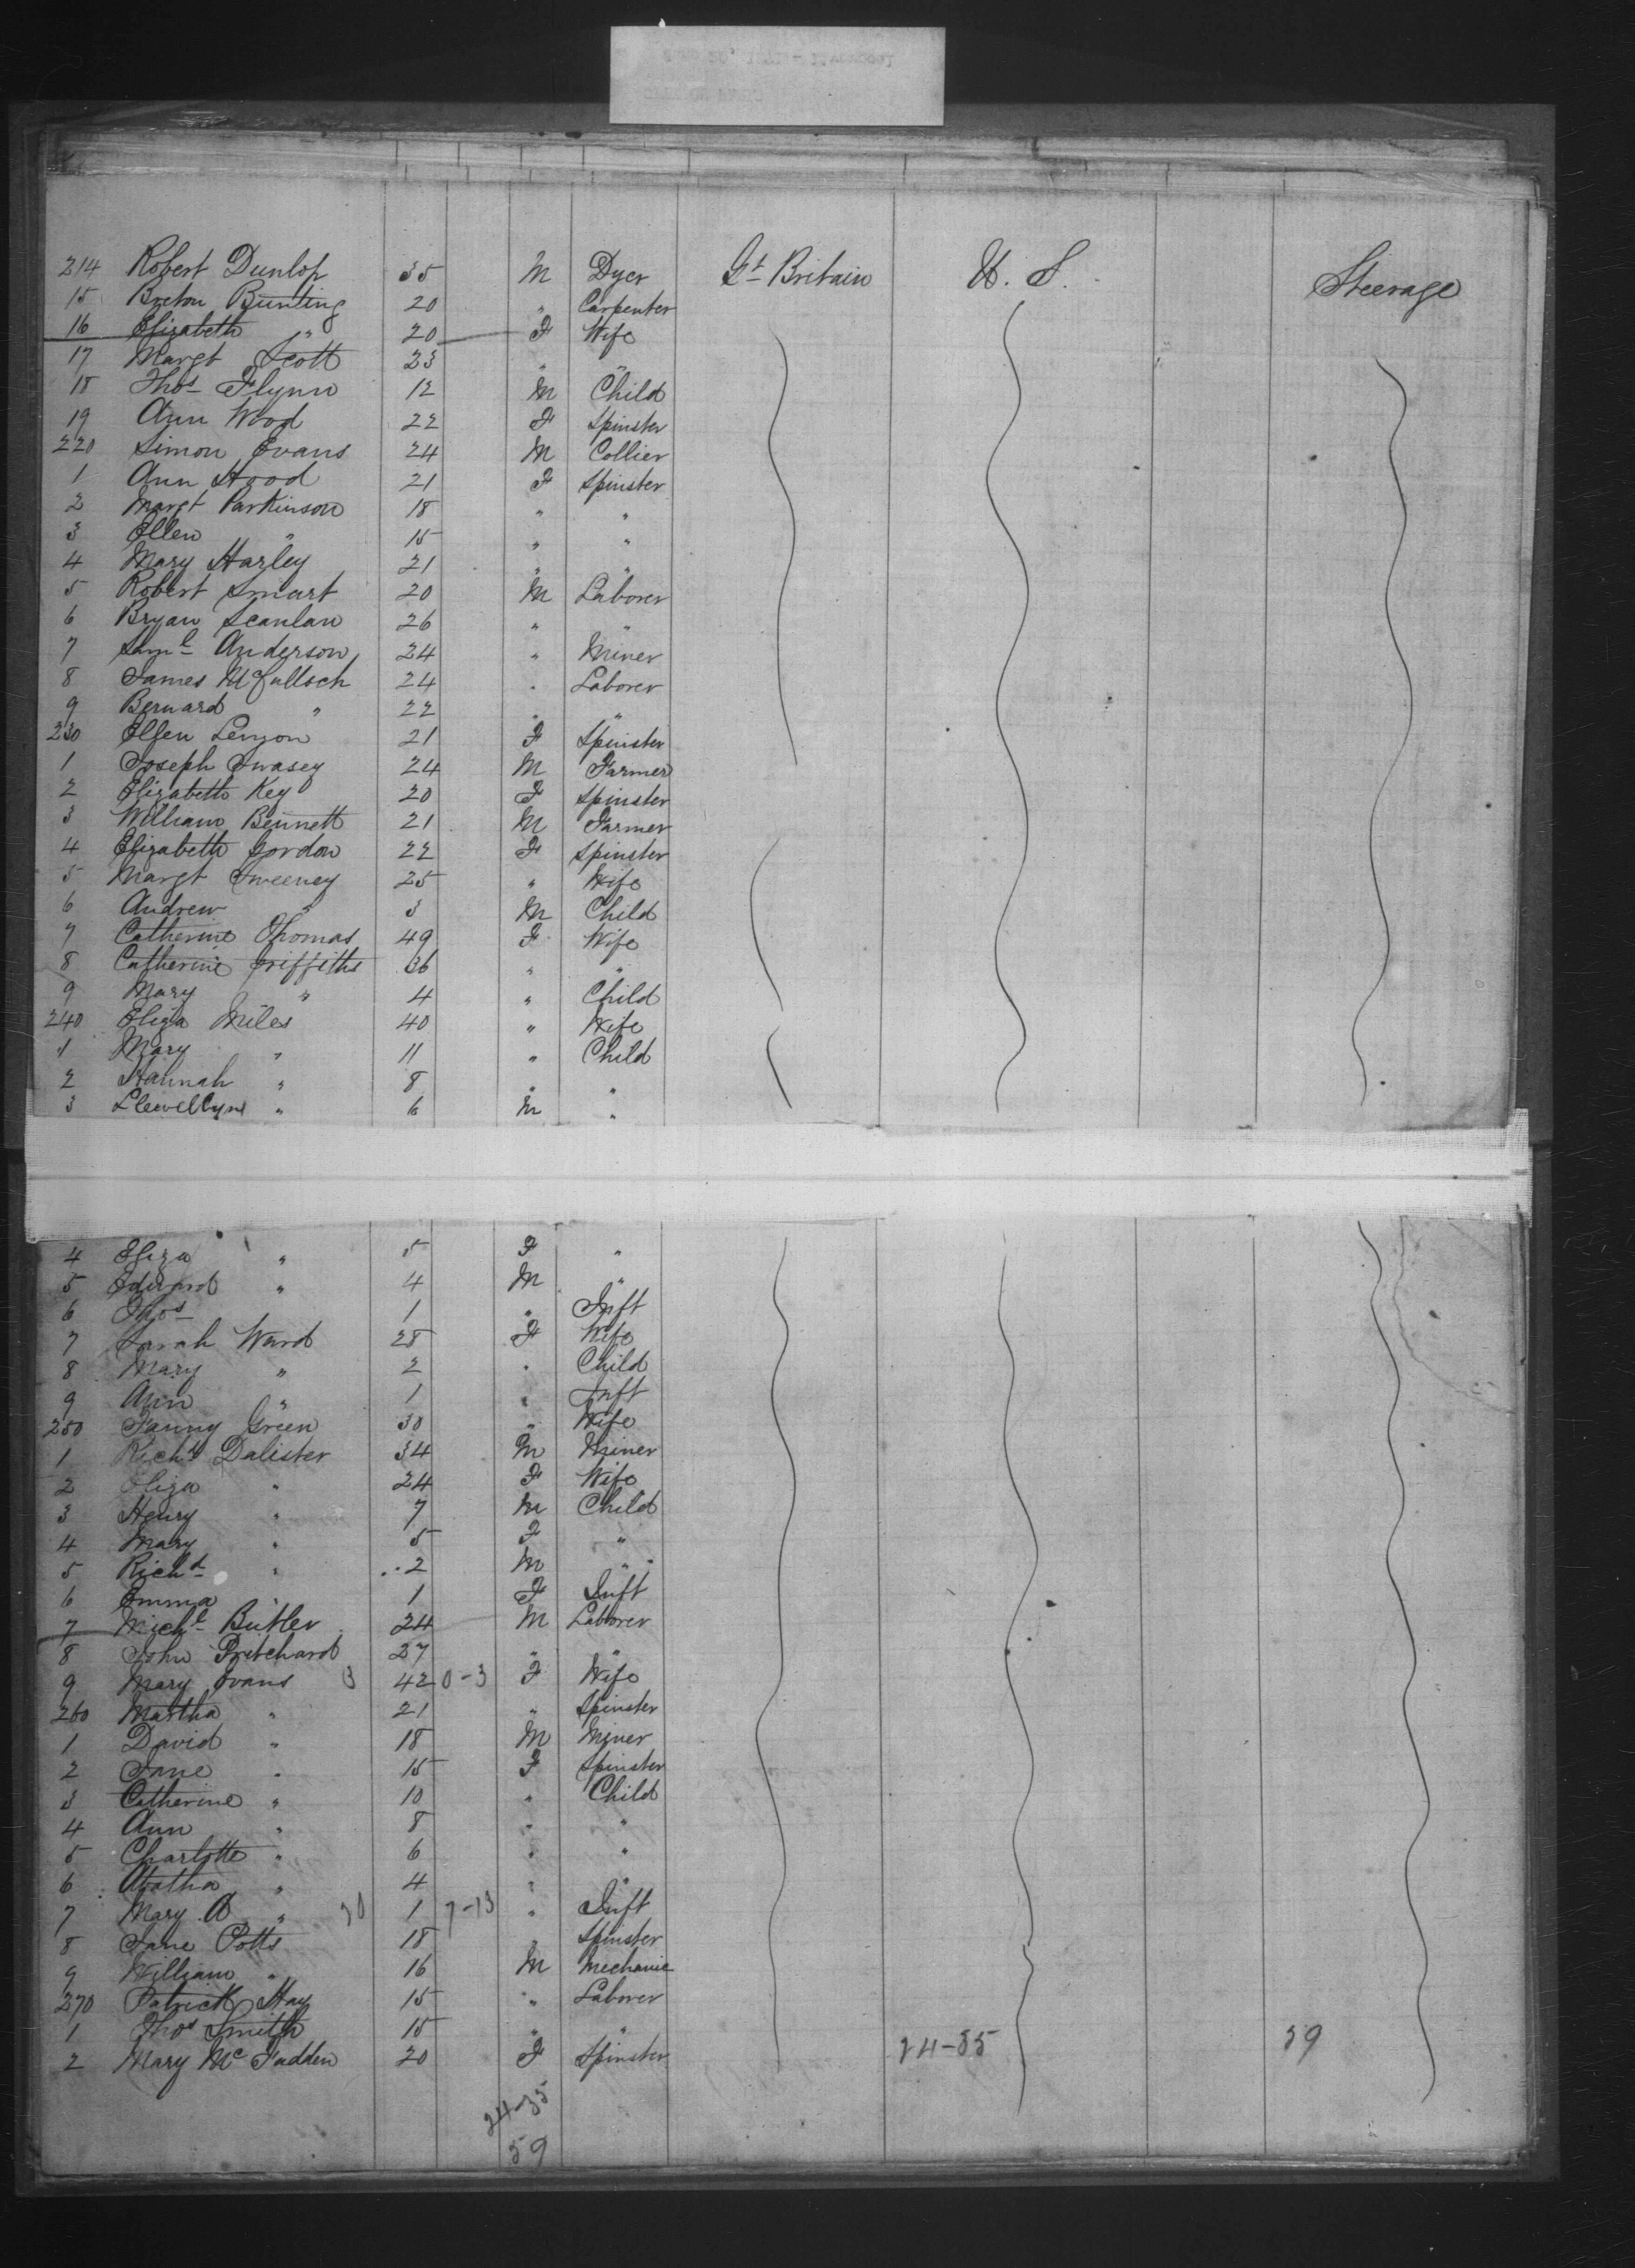 214 Robert Dunlop 35 M Dyer Gt Britain U. S. Steerage
15 Breton Bunting 20 " Carpenter
16 Elizabeth " 20 F Wife
17 Margt Scott 23 " "
18 Thos Flynn 12 M Child
19 Ann Wood 22 F Spinster
220 Simon Evans 24 M Collier
1 Ann Hood 21 F Spinster
2 Margt Parkinson 18 " "
3 Ellen " 15 " "
4 Mary Harley 21 " "
5 Robert Smart 20 M Laborer
6 Bryan Scanlan 26 " "
7 Saml Anderson 24 " Miner
8 James McCulloch 24 " Laborer
9 Bernard " 22 " "
230 Ellen Lenzon 21 F Spinster
1 Joseph Swasey 24 M Farmer
2 Elizabeth Key 20 F Spinster
3 William Bennett 21 M Farmer
4 Elizabeth Gordon 22 F Spinster
5 Margt Sweeney 25 " Wife
6 Andrew " 3 M Child
7 Catherine Thomas 49 F Wife
8 Catherine Griffiths 36 " "
9 Mary " 4 " Child
240 Eliza Miles 40 " Wife
1 Mary " 11 " Child
2 Hannah " 8 " "
3 Llewellyn " 6 M "
4 Eliza " 5 F "
5 Edward " 4 M "
6 Thos 1 " Inft
7 Sarah Ward 28 F Wife
8 Mary " 2 " Child
9 Ann " 1 " Inft
250 Fanny Green 30 " Wife
1 Richd Dalister 34 M Miner
2 Eliza " 24 F Wife
3 Henry " 7 M Child
4 Mary " 5 F "
5 Richd " 2 M "
6 Emma " 1 F Inft
7 Michl Butler 24 M Laborer
8 John Pritchard 27 " "
9 Mary Evans 3 42 0-3 F Wife
260 Martha " 21 " Spinster
1 David " 18 M Miner
2 Jane " 15 F Spinster
3 Catherine " 10 " Child
4 Ann " 8 " "
5 Charlotte " 6 " "
6 Agatha " 4 " "
7 Mary A " 20 1 7-13 " Inft
8 Jane Potts 18 " Spinster
9 William " 16 M Mechanic
270 Patrick Hay 15 " Laborer
1 Thos Smith 15 " "
2 Mary McFadden 20 F Spinster 24-35 59
24-35
59